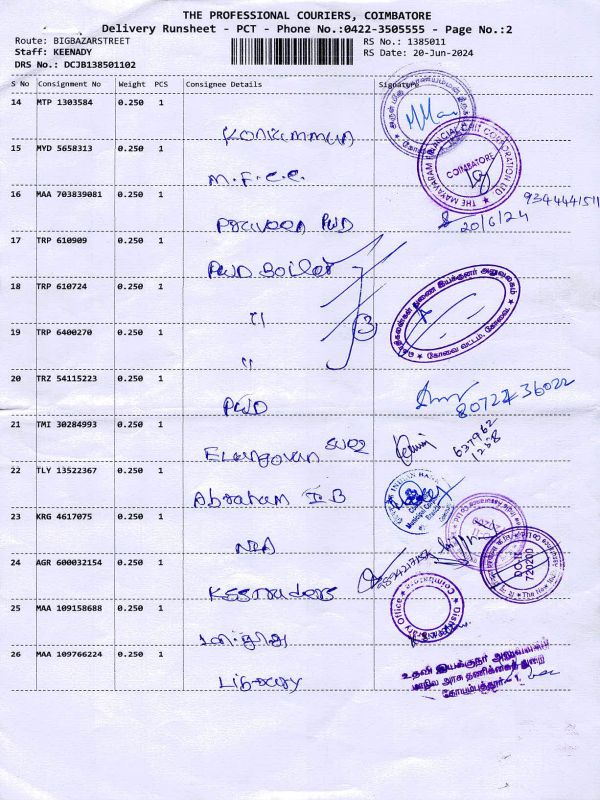 THE PROFESSIONAL COURIERS, COIMBATORE
Delivery Runsheet - PCT - Phone No.:0422-3505555 - Page No.:2
Route: BIGBAZARSTREET RS No.: 1385011
Staff: KEENADY RS Date: 20-Jun-2024
DRS No.: DCJB138501102
S No Consignment No Weight PCS Consignee Details Signature
14 MTP 1303584 0.250 1
15 MYD 5658313 0.250 1
M.F.C.C.
THE MAYAVARAM FINANCIAL CHIT CORPORATION LTD.
COIMBATORE
16 MAA 703839081 0.250 1
Praveen PWD
20/6/24
17 TRP 610909 0.250 1
PWD Boiler
18 TRP 610724 0.250 1
"
3
தொழிற்சாலைகள் துணை இயக்குனர் அலுவலகம்
கோவை வட்டம், கோவை
19 TRP 6400270 0.250 1
"
20 TRZ 54115223 0.250 1
PWD
21 TMI 30284993 0.250 1
Elangovan
637962
1258
22 TLY 13522367 0.250 1
Abraham I.B
INDIAN BANK
23 KRG 4617075 0.250 1
NIA
24 AGR 600032154 0.250 1
KSS Traders
DO-II
720200
25 MAA 109158688 0.250 1
District Library Office
Coimbatore
26 MAA 109766224 0.250 1
Library
உதவி இயக்குநர் அலுவலகம்
மாநில அரசு தணிக்கைத் துறை
கோயம்புத்தூர் - 1.